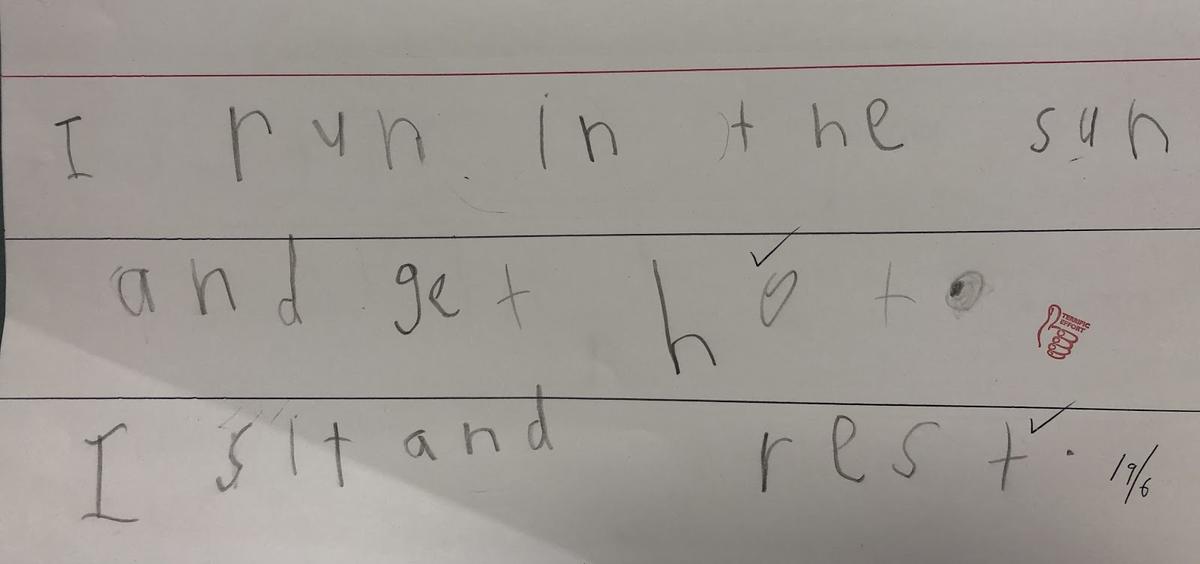 I run in the sun
and get hot.
TERRIFIC EFFORT
I sit and rest.
19/6